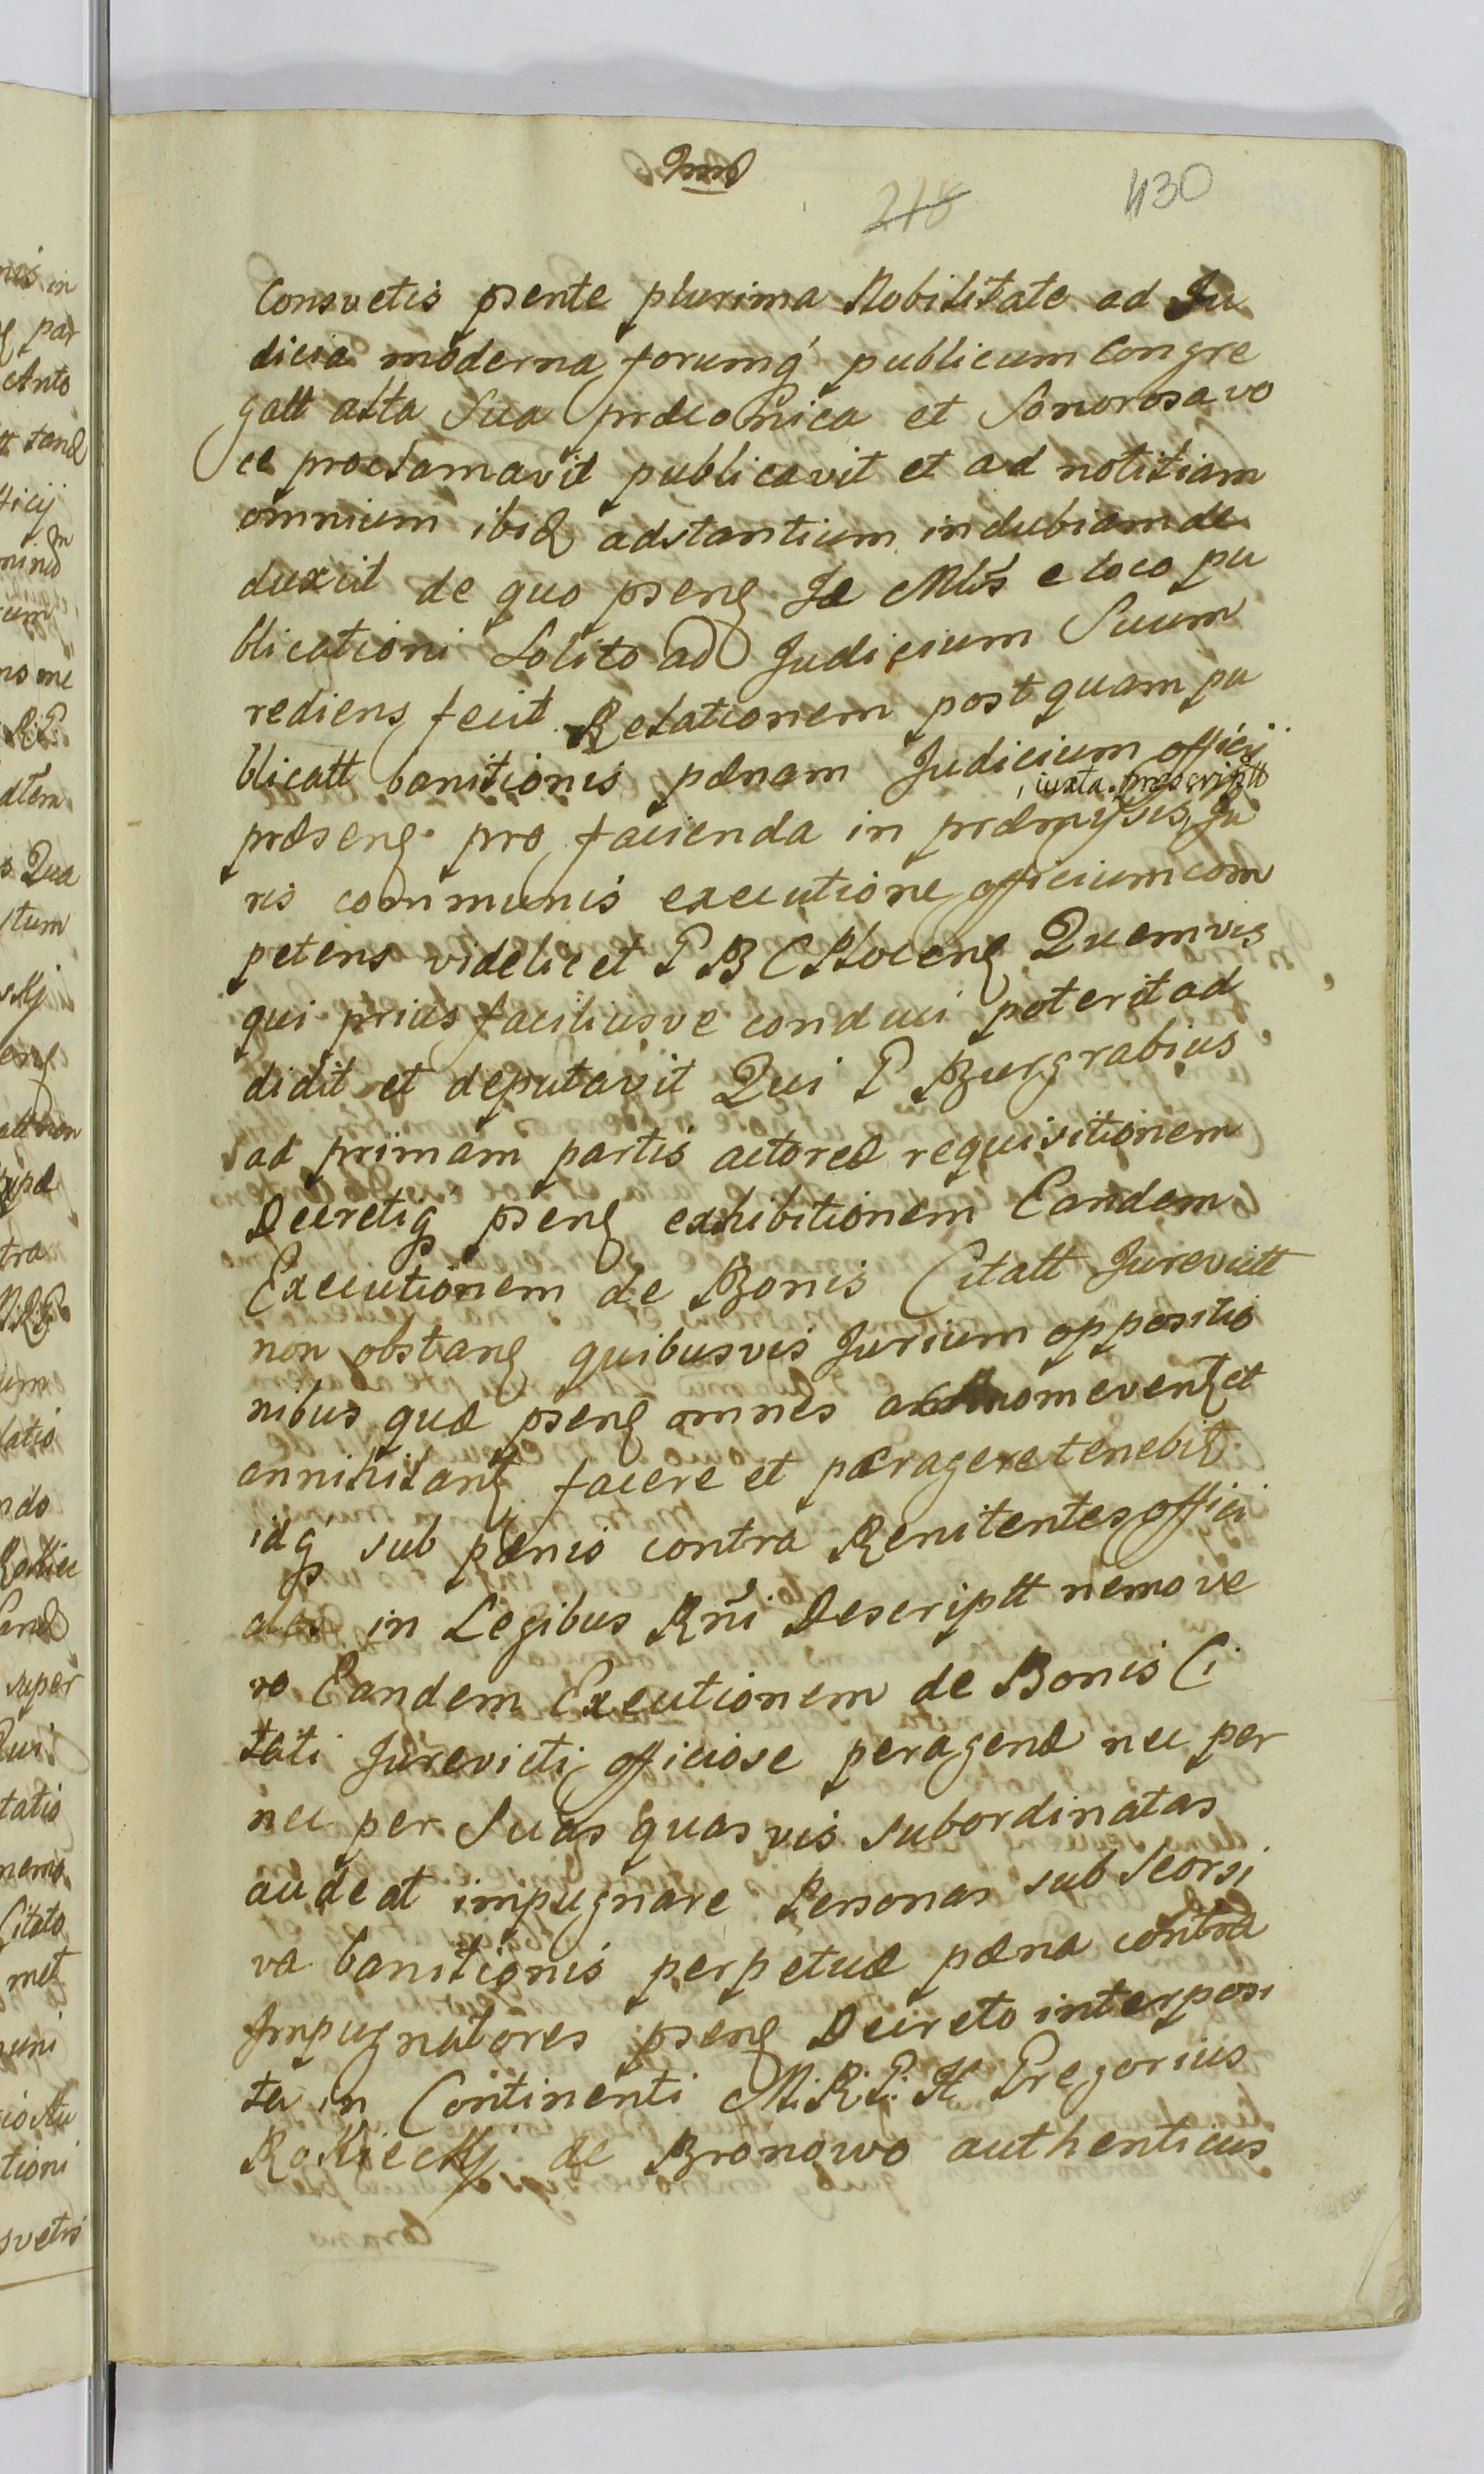 218 430
Consvetis psente plurima Nobilitate ad Ju
dicia moderna forumq́ publicum Congre
gatt alta Sua præconica et Sonorosa vo
ce proclamavit publicavit et ad notitiam
omnium ibiđ adstantium indubiam de
duxit de quo pseng Je Mlis e loco pu
blicationi Solito ad Judicium Suum
rediens fecit Relationem post quam pu
blicatt banitionis pænam Judicium officij
iuxta præscriptt
præseng pro facienda in præmissis Ju
ris communis executione officium com
petens videlicet P B C Ploceng Quemvis
qui prius faciliusve conduci poterit ad
didit et deputavit Qui P Burgrabius
ad primam partis actoreæ requisitionem
Decretiq pseng exhibitionem Eandem
Executionem de Bonis Citatt Jurevictt
non obstang quibusvis Jurium oppositio
nibus quæ pseng omnes eveng et
annihilang facere et peragere tenebit
idq́ sub pænis contra Renitentes offici
ales in Legibus Rñi Descriptt nemo ve
ro Eandem Executionem de Bonis Ci
tati Jurevicti officiose peragend nec per
nec per Suas quas vis subordinatas
audeat impugnare Personas sub Seorsi
va banitionis perpetuæ pæna contra
Impugnatores pseng Decreto interposi
ta in Continenti M. R. P. H Gregorius
Rokieckj de Bronowo authenticus